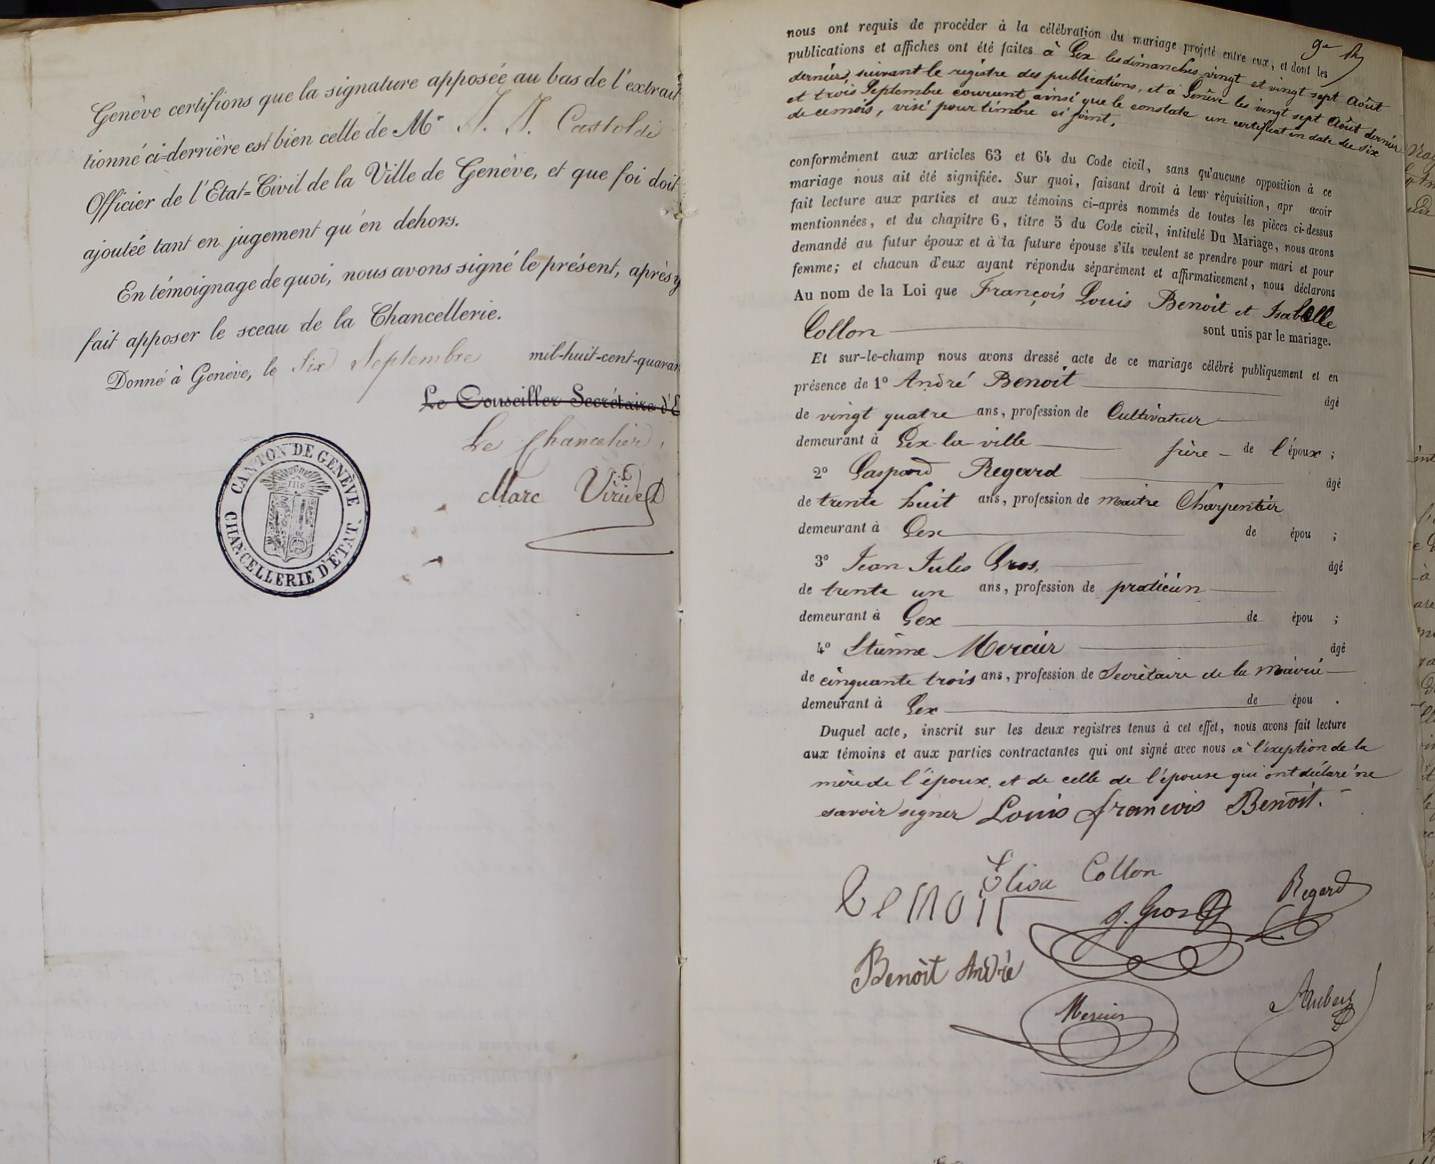 Genève certifions que la signature apposée au bas de l'extrait
tionné ci-derrière est bien celle de Mr J. J. Castoldi
Officier de l'Etat-Civil de la Ville de Genève, et que foi doit
ajoutée tant en jugement qu'en dehors.
En témoignage de quoi, nous avons signé le présent, après y
fait apposer le sceau de la Chancellerie.
Donné à Genève, le Six Septembre mil-huit-cent-quaran
Le Conseiller Secrétaire d'E
Le Chancelier,
Marc Viridet
CANTON DE GENÈVE
CHANCELLERIE D'ÉTAT
nous ont requis de procéder à la célébration du mariage projeté entre eux, et dont les
publications et affiches ont été faites à Gex les dimanches vingt et vingt sept Août
dernier, suivant le registre des publications, et à Genève les vingt sept Août dernier
et trois Septembre courant, ainsi que le constate un certificat en date du six
de ce mois, visé pour timbre ci joint,
conformément aux articles 63 et 64 du Code civil, sans qu'aucune opposition à ce
mariage nous ait été signifiée. Sur quoi, faisant droit à leur réquisition, apr avoir
fait lecture aux parties et aux témoins ci-après nommés de toutes les pièces ci-dessus
mentionnées, et du chapitre 6, titre 5 du Code civil, intitulé Du Mariage, nous avons
demandé au futur époux et à la future épouse s'ils veulent se prendre pour mari et pour
femme; et chacun d'eux ayant répondu séparément et affirmativement, nous déclarons
Au nom de la Loi que François Louis Benoit et Isabelle
Collon sont unis par le mariage.
Et sur-le-champ nous avons dressé acte de ce mariage célébré publiquement et en
présence de 1º André Benoit âgé
de vingt quatre ans, profession de Cultivateur
demeurant à Gex-la-ville frère de l'époux;
2º Gaspard Regard âgé
de trente huit ans, profession de maitre Charpentier
demeurant à Gex de épou ;
3º Jean Jules Gros, âgé
de trente un ans, profession de praticien
demeurant à Gex de épou ;
4º Etienne Mercier âgé
de cinquante trois ans, profession de Secrétaire de la mairie
demeurant à Gex de épou .
Duquel acte, inscrit sur les deux registres tenus à cet effet, nous avons fait lecture
aux témoins et aux parties contractantes qui ont signé avec nous à l'exeption de la
mère de l'époux, et de celle de l'épouse qui ont déclaré ne
savoir signer Louis françois Benoit.
Elisa Collon
Benoit
J. Gros
Regard
Benoit André
Mercier